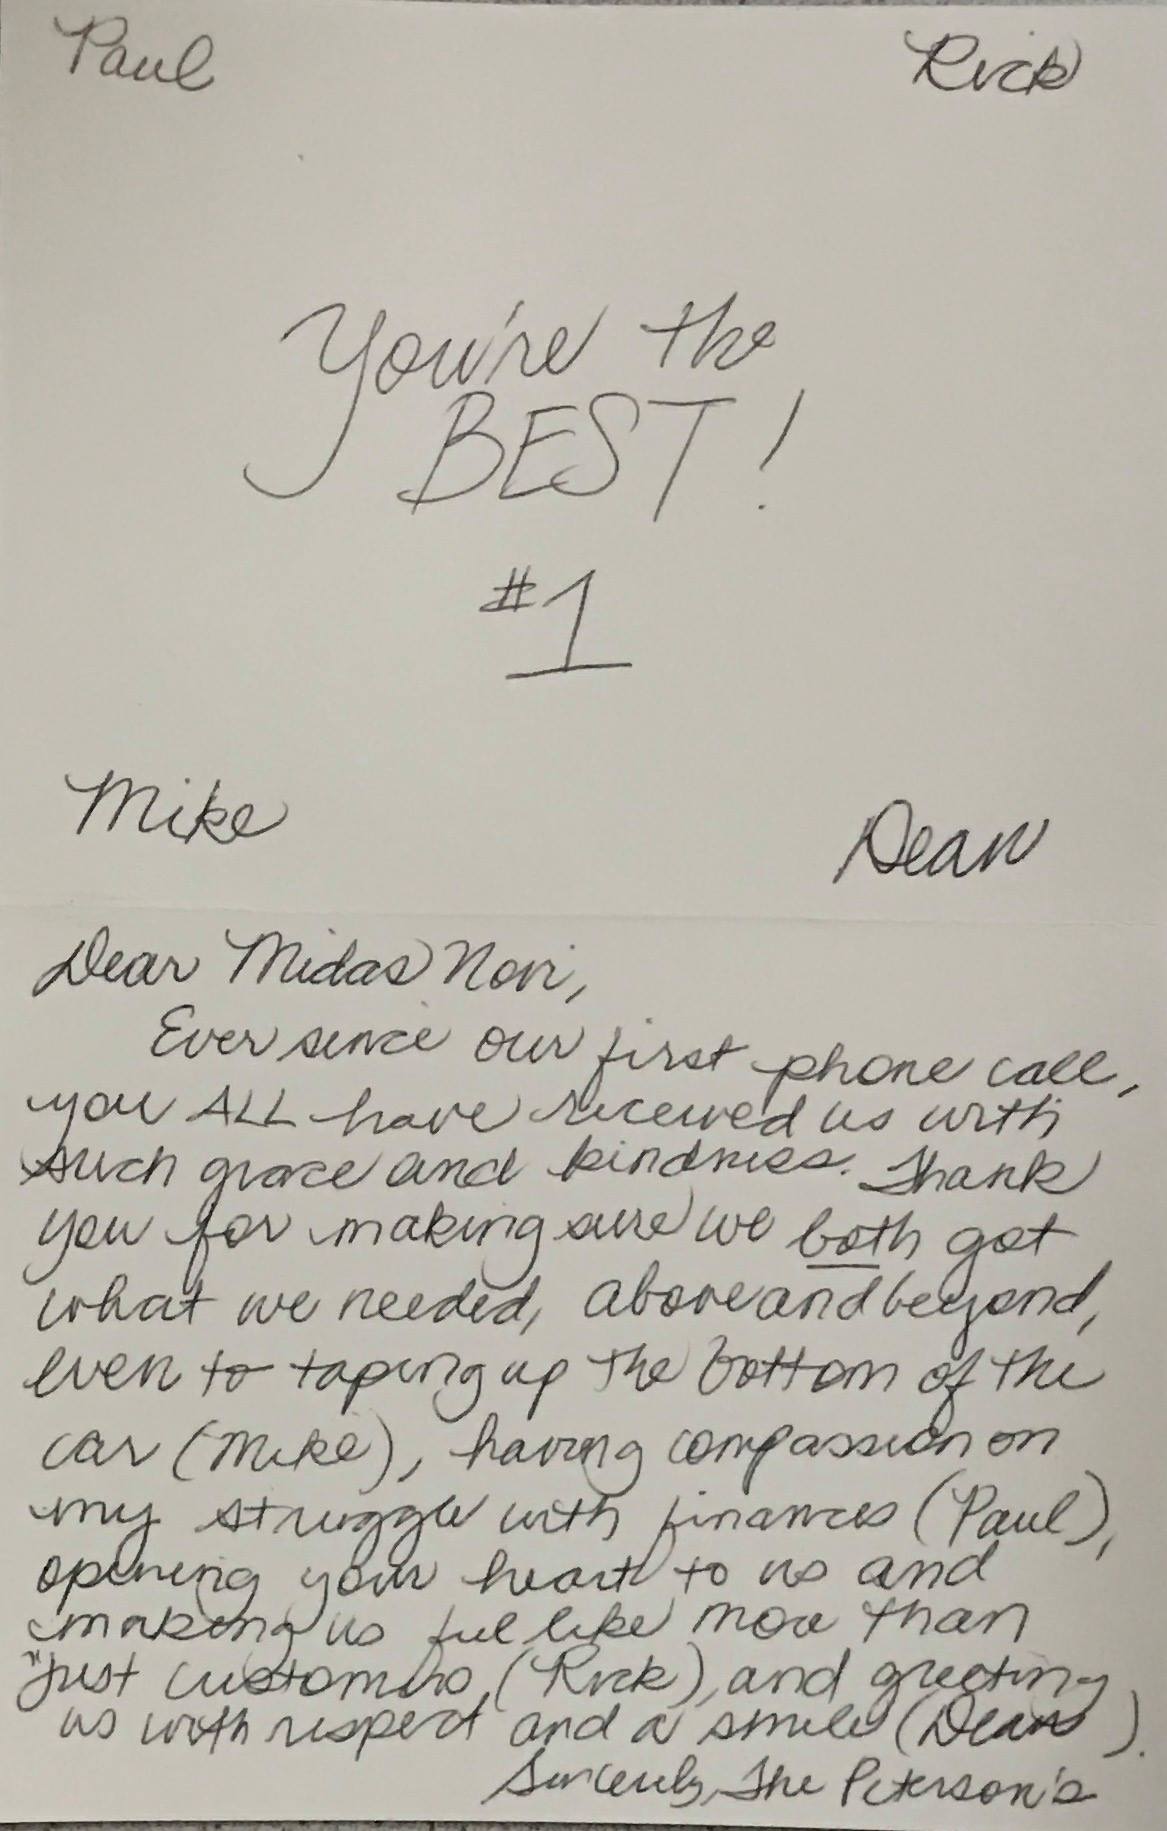 Paul Rick
You're the
BEST!
#1
Mike Dean
Dear Midas Novi,
Ever since our first phone call,
you ALL have received us with
such grace and kindness. Thank
you for making sure we both got
what we needed, above and beyond,
even to taping up the bottom of the
car (Mike), having compassion on
my struggle with finances (Paul),
opening your heart to us and
making us feel like more than
"just customers, (Rick), and greeting
us with respect and a smile (Dean).
Sincerely, The Peterson's